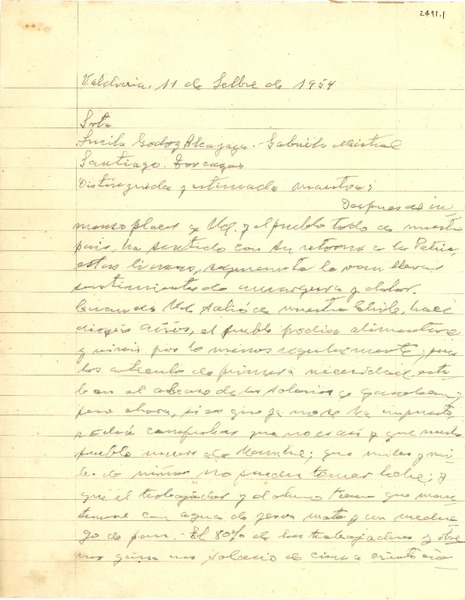 2491.1
Valdivia, 11 de Setbre de 1954
Srta
Lucila Godoy Alcayaga - Gabriela Mistral
Santiago.
Distinguida y estimada maestra:
Después del in
menso placer q Ud. y el pueblo todo de nuestro
país, ha sentido con su retorno a la Patria,
estas líneas, seguramente le van llevar
sentimientos de amargura y dolor.
Cuando Ud. salió de nuestro Chile, hace
años, el pueblo podía alimentarse
y vivir por lo menos regularmente, pues
los artículos de primera necesidad esta
ban al alcance de los salarios q ganaban,
pero ahora, si es que ya no se ha impuesto
podrá comprobar que no es así y que nuestro
pueblo muere de hambre; que miles y mi
les de niños no pueden tomar leche; y
que el trabajador y el obrero tienen que man
tenerse con agua de yerva mate y un mendru
go de pan. El 80% de los trabajadores y obre
ros ganan un salario de cien a ciento